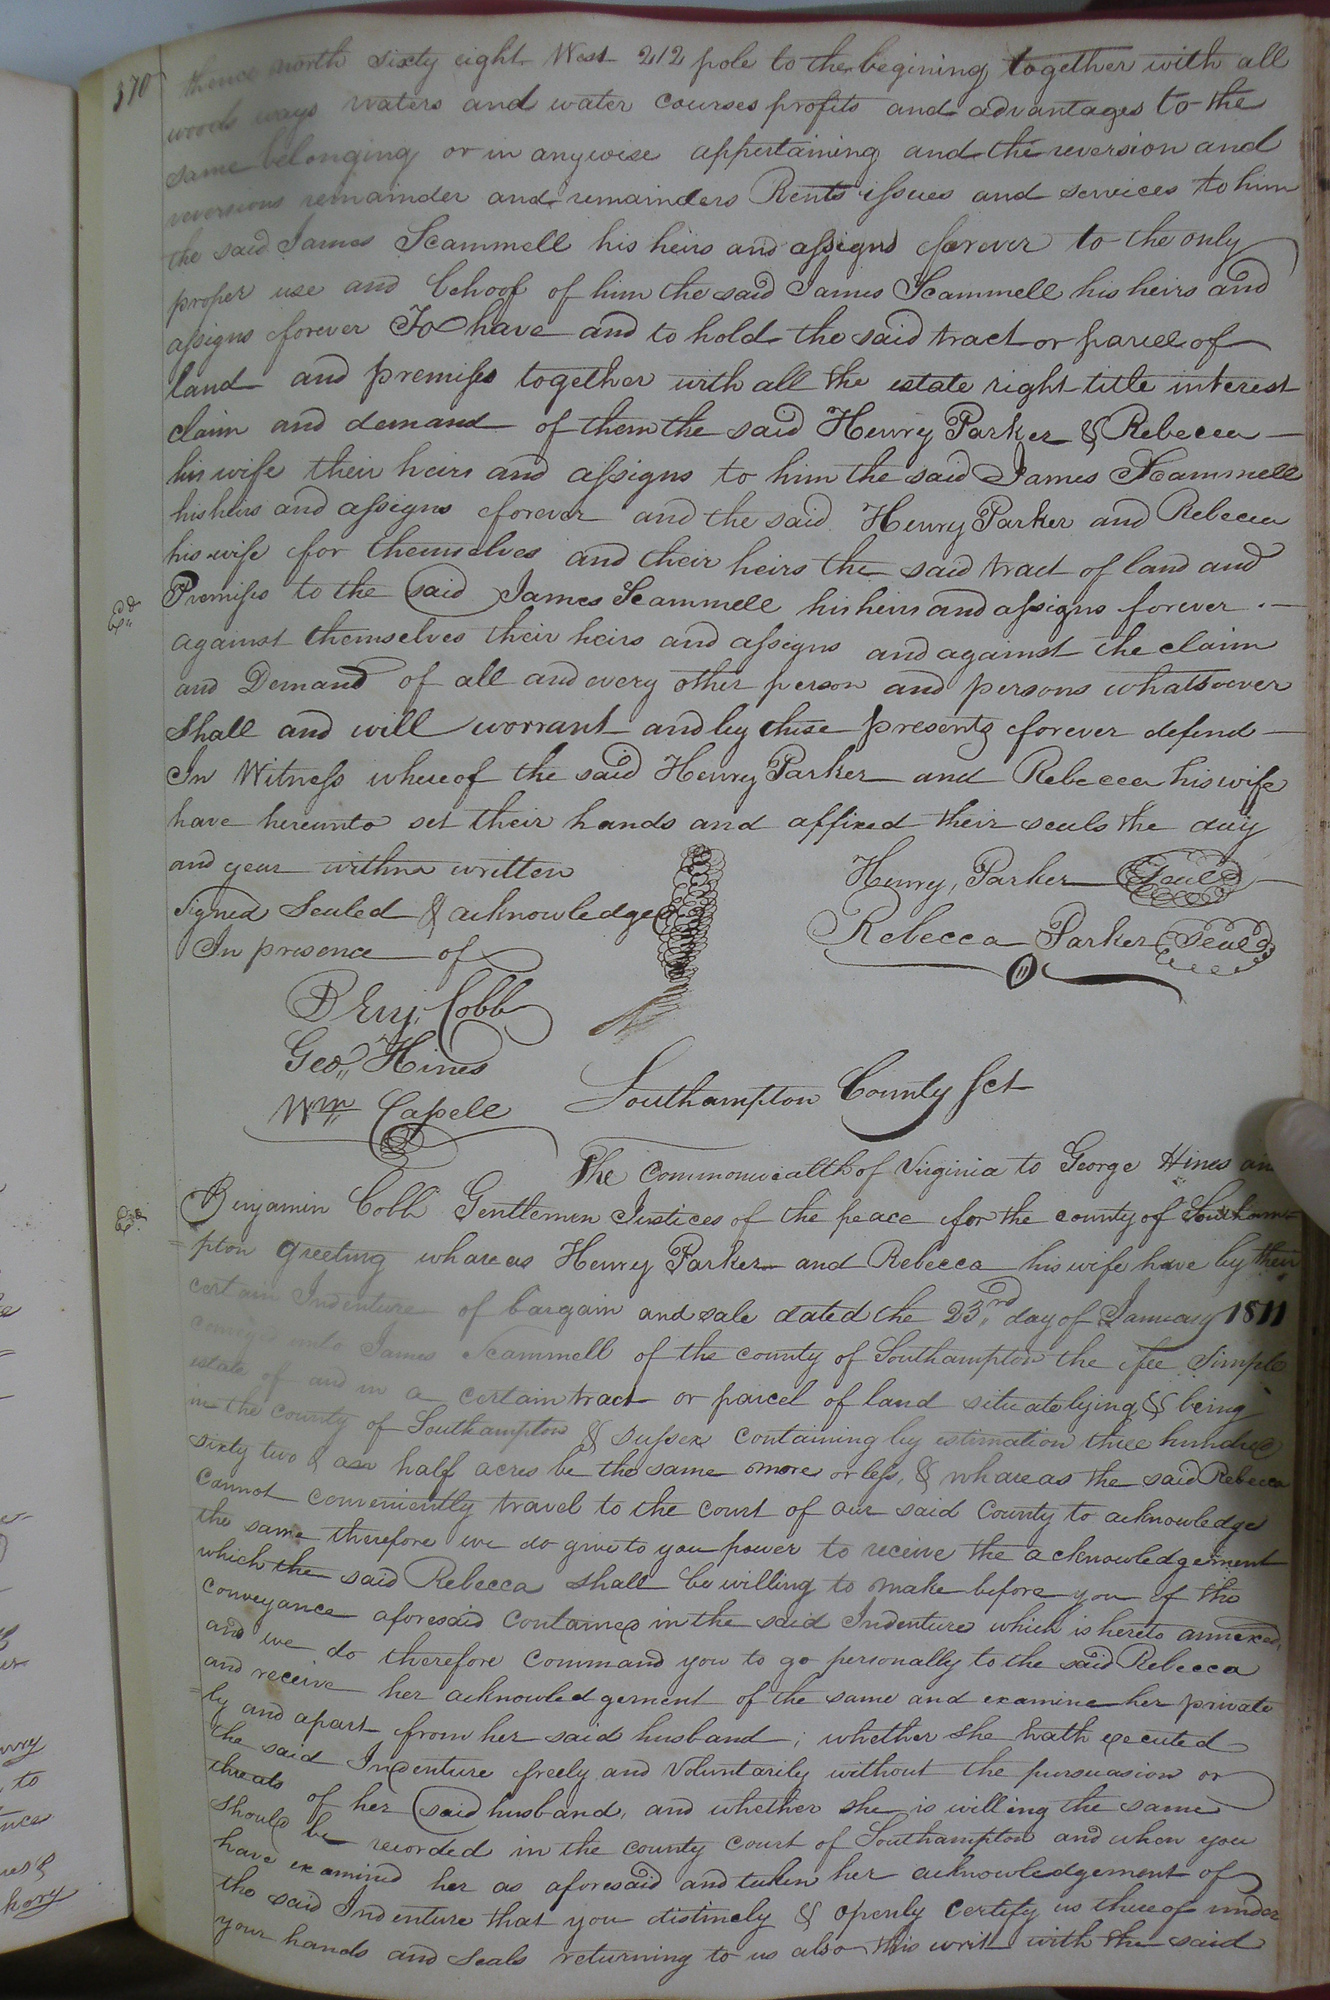 370
thence north sixty eight West 212 pole to the begining together with all
woods ways waters and water courses profits and advantages to the
same belonging or in anywise appertaining and the reversion and
reversions remainder and remainders Rents issues and services to him
the said James Scammell his heirs and assigns forever to the only
proper use and behoof of him the said James Scammell his heirs and
assigns forever To have and to hold the said tract or parcel of
land and premises together with all the estate right title interest
claim and demand of them the said Henry Parker & Rebecca
his wife their heirs and assigns to him the said James Scammell
his heirs and assigns forever and the said Henry Parker and Rebecca
his wife for themselves and their heirs the said tract of land and
Premises to the said James Scammell his heirs and assigns forever
against themselves their heirs and assigns and against the claim
and Demand of all and every other person and persons whatsoever
shall and will worrant and by these presents forever defend
In Witness whereof the said Henry Parker and Rebecca his wife
have hereunto set their hands and affixed their seals the day
and year within written
Henry Parker Seal'd
Signed Sealed & acknowledged
Rebecca Parker Seal'd
In presence of
Benj. Cobb
Geo,, Hines
Wm Capell
Southampton County Sct
The commonwealth of Virginia to George Hines an
Benjamin Cobb Gentlemen Justices of the peace for the county of Southam=
=pton greeting whareas Henry Parker and Rebecca his wife have by their
certain Indenture of bargain and sale dated the 23,,rd day of January 1811
conveyed unto James Scammell of the county of Southampton the fee Simple
estate of and in a certain tract or parcel of land situate lying & being
in the county of Southampton & sussex containing by estimation three hundred
sixty two & an half acres be the same more or less, & whareas the said Rebecca
cannot conveniently travel to the court of our said County to acknowledge
the same therefore we do give to you power to receive the acknowledgement
which the said Rebecca shall be willing to make before you of the
conveyance aforesaid contained in the said Indenture which is hereto annexed,
and we do therefore command you to go personally to the said Rebecca
and receive her acknowledgement of the same and examine her private
=ly and apart from her said husband; whether she hath executed
the said Indenture freely and Voluntarily without the pursuasion or
threats of her said husband, and whether she is willing the same
should be recorded in the county court of Southampton and when you
have examined her as aforesaid and taken her acknowledgement of
the said Indenture that you distinctly & openly certify us thereof under
your hands and seals returning to us also this writ with the said